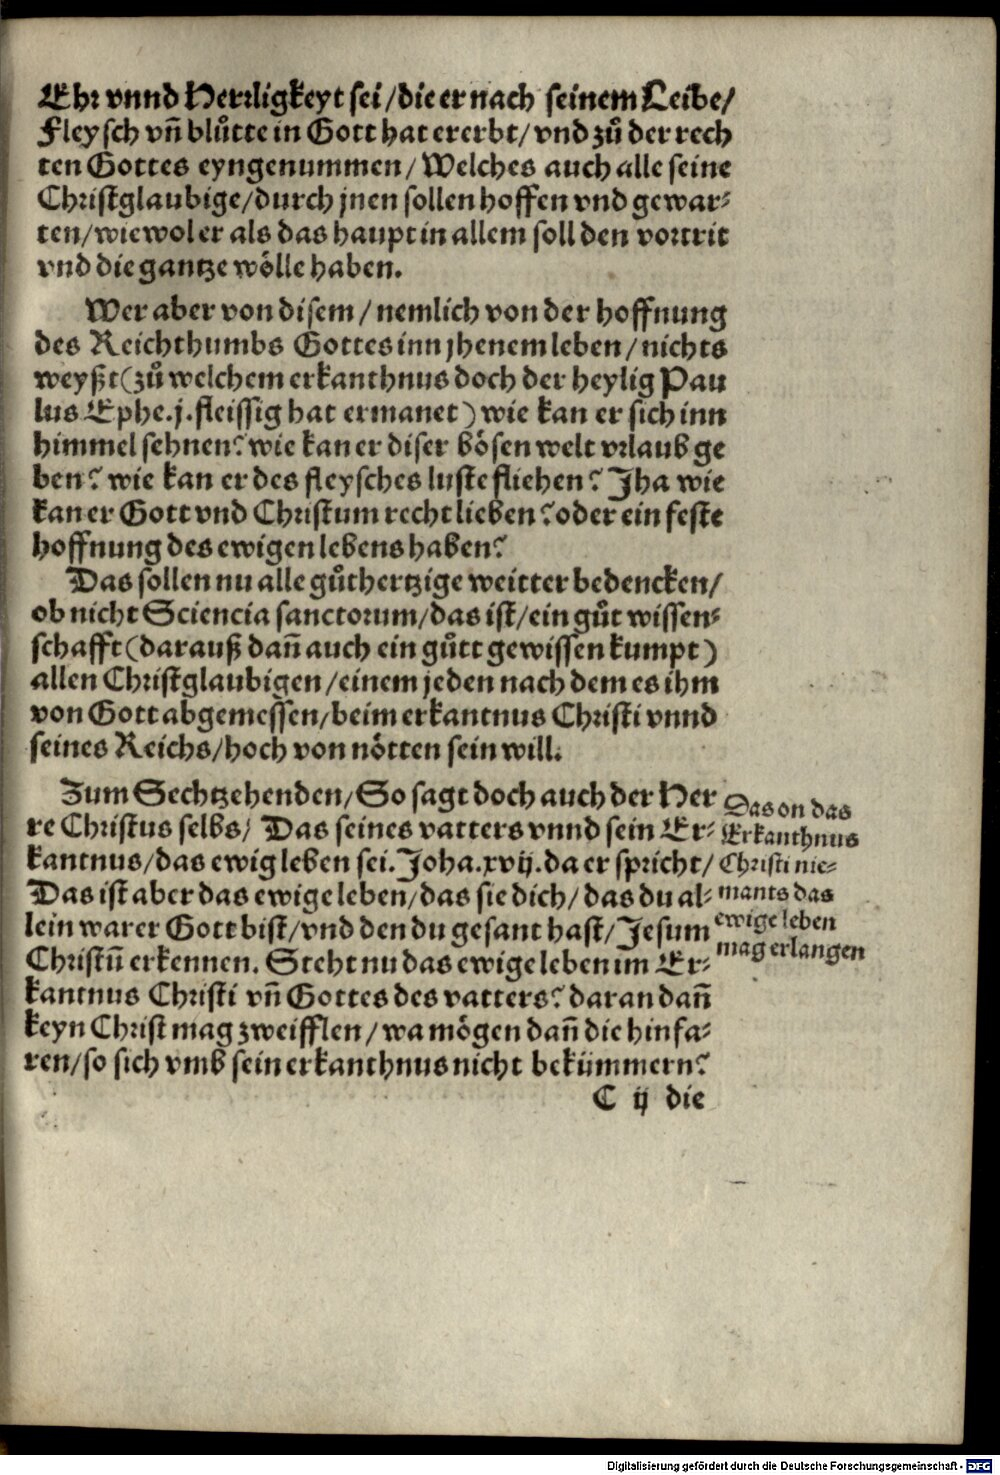 Ehr vnnd Herrligkeyt sei/die er nach seinem Leibe/
Fleysch vñ blůtte in Gott hat ererbt/vnd zů der rech
ten Gottes eyngenummen/Welches auch alle seine
Christglaubige/durch jnen sollen hoffen vnd gewar⸗
ten/wiewol er als das haupt in allem soll den vortrit
vnd die gantze wölle haben.
Wer aber von disem/nemlich von der hoffnung
des Reichthumbs Gottes inn jhenem leben/nichts
weyßt(zů welchem erkanthnus doch der heylig Pau
lus Ephe.j.fleissig hat ermanet)wie kan er sich inn
himmel sehnen?wie kan er diser bösen welt vrlaub ge
ben? wie kan er des fleysches luste fliehen? Jha wie
kan er Gott vnd Christum recht lieben?oder ein feste
hoffnung des ewigen lebens haben?
Das sollen nu alle gůthertzige weitter bedencken/
ob nicht Sciencia sanctorum/das ist/ein gůt wissen⸗
schafft(darauß dañ auch ein gůtt gewissen kumpt)
allen Christglaubigen/einem jeden nach dem es ihm
von Gott abgemessen/beim erkantnus Christi vnnd
seines Reichs/hoch von nötten sein will.
Zum Sechtzehenden/So sagt doch auch der Her
re Christus selbs/ Das seines vatters vnnd sein Er⸗
kantnus/das ewig leben sei.Joha.xvij.da er spricht/
Das ist aber das ewige leben/das sie dich/das du al⸗
lein warer Gott bist/vnd den du gesant hast/Jesum
Christũ erkennen. Steht nu das ewige leben im Er⸗
kantnus Christi vñ Gottes des vatters?daran dañ
keyn Christ mag zweifflen/wa mögen dañ die hinfa⸗
ren/so sich vmb sein erkanthnus nicht bekümmern?
C ij die
Das on das
Erkanthnus
Christi nie⸗
mants das
ewige leben
mag erlangen
Digitalisierung gefördert durch die Deutsche Forschungsgemeinschaft - DFG